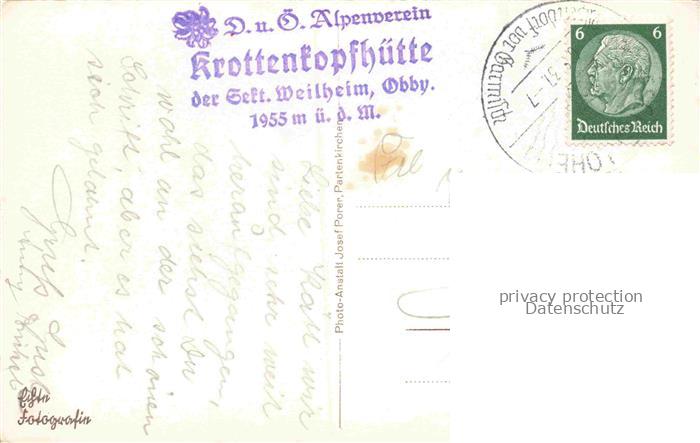 D. u. Ö. Alpenverein
Krottenkopfhütte
der Sekt. Weilheim, Obby.
1955 m ü. d. M.
dorf vor Garmisch
6 6
Deutsches Reich
Photo-Anstalt Josef Porer, Partenkirchen
Liebe wir
sind sehr weit
heraufgegangen,
das siehst Du
wohl an der schönen
Schrift, aber es hat
sich gelohnt.
Gruß
privacy protection
Datenschutz
Echte
Fotografie